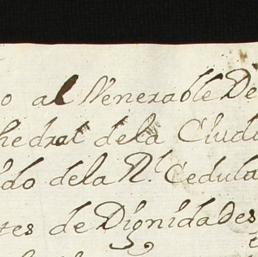 o al Venerable De
hedral dela Ciuda
do dela Rl. Cedula
tes de Dignidades